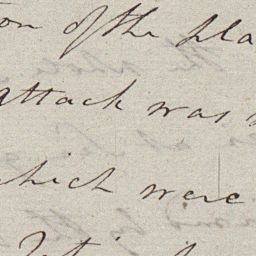 of the pla
attack was
which were